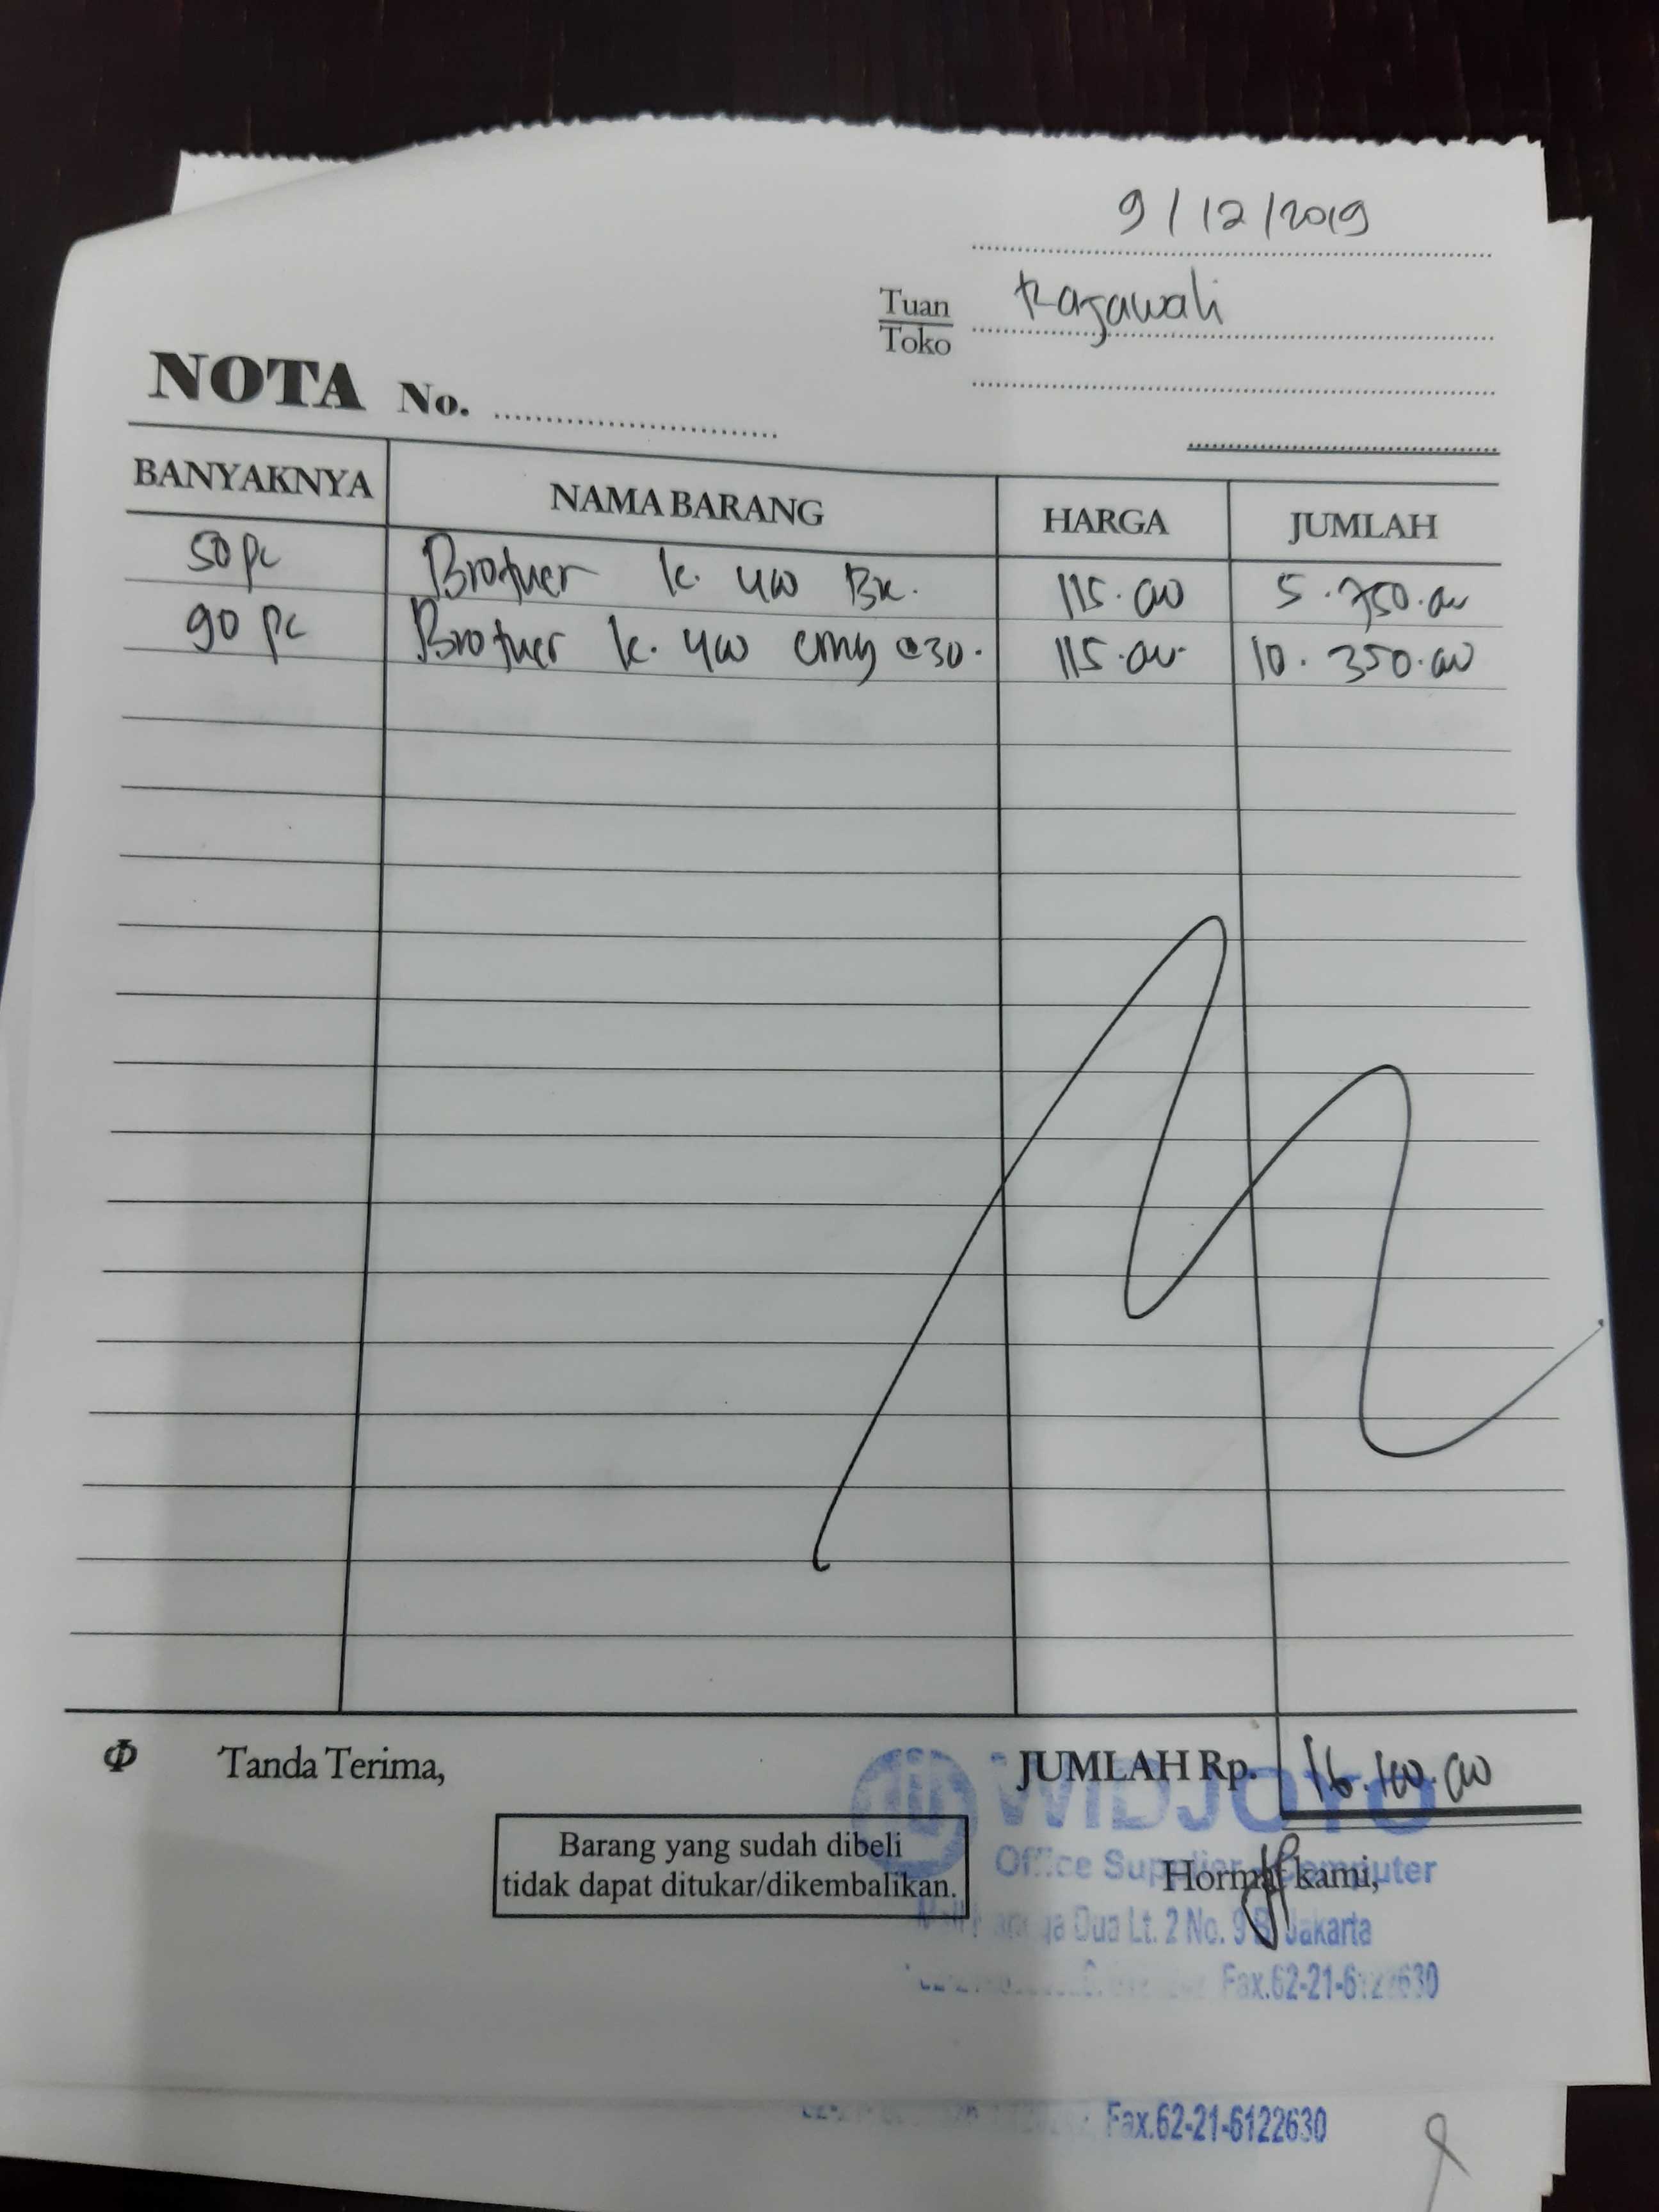 9/12/2019
Tuan
Toko
Rajawali
NOTA No.
BANYAKNYA NAMA BARANG HARGA JUMLAH
50 pc Brother k. 400 BK. 115.000 5.750.000
90 pc Brother k. 400 cmy @30. 115.000 10.350.000
Φ Tanda Terima, JUMLAH Rp. 16.100.000
WIDJOYO
Barang yang sudah dibeli
tidak dapat ditukar/dikembalikan.
Office Supplier Computer
Hormat kami,
Dua Lt. 2 No. 9 B Jakarta
Fax.62-21-6122630
Fax.62-21-6122630